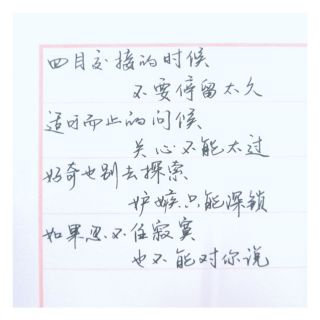 四目交接的时候
不要停留太久
适可而止的问候
关心不能太过
好奇也别去探索
妒嫉只能深锁
如果忍不住寂寞
也不能对你说